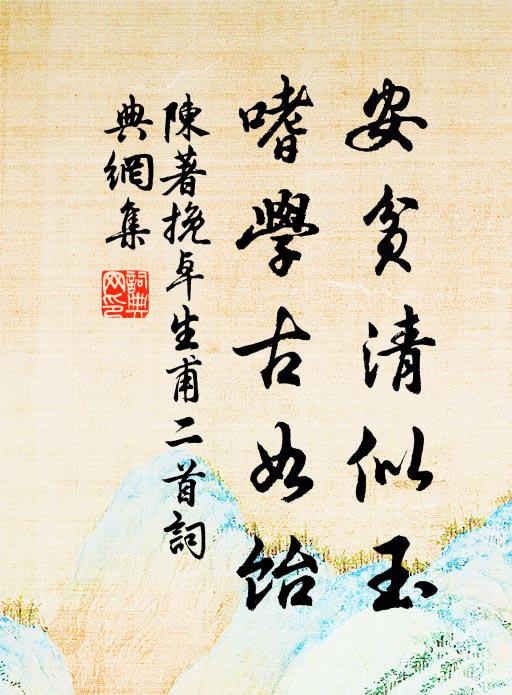 安貧清似玉
嗜學古如飴
陳著挽卓生甫二首詞
典網集
詞典網印